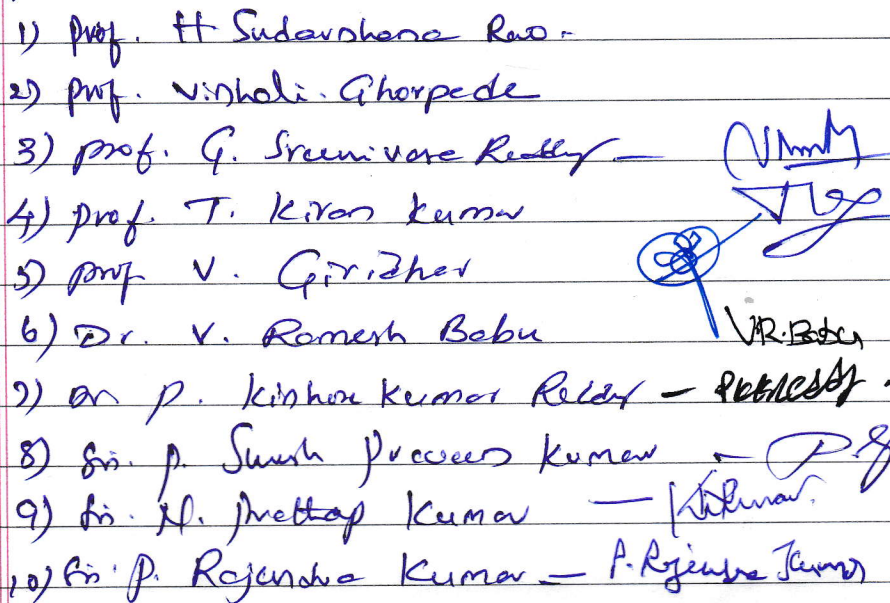 1) Prof. H Sudarshana Rao -
2) Prof. Vishali. Ghorpede
3) Prof. G. Sreenivasa Reddy -
4) Prof. T. Kiran Kumar
5) Prof V. Giridhar
6) Dr. V. Ramesh Babu V.R. Babu
7) Dr P. Kishore Kumar Reddy - PKKReddy
8) Sri. P. Suresh Praveen Kumar -
9) Sri. N. Prathap Kumar -
10) Sri P. Rajendra Kumar - P. Rajendra Kumar